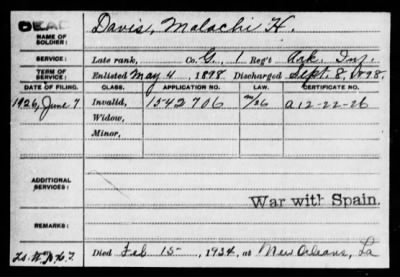 DEAD
NAME OF SOLDIER: Davis, Malachi H.
SERVICE: Late rank, Co. G, 1 Reg't Ark. Inf.
TERM OF SERVICE: Enlisted May 4, 1898. Discharged Sept. 8, 1898.
DATE OF FILING. CLASS. APPLICATION NO. LAW. CERTIFICATE NO.
1926, June 7 Invalid, 1542706 a 12-22-26
Widow,
Minor,
ADDITIONAL SERVICES:
War with Spain.
REMARKS:
Died Feb 15, 1934, at New Orleans, La